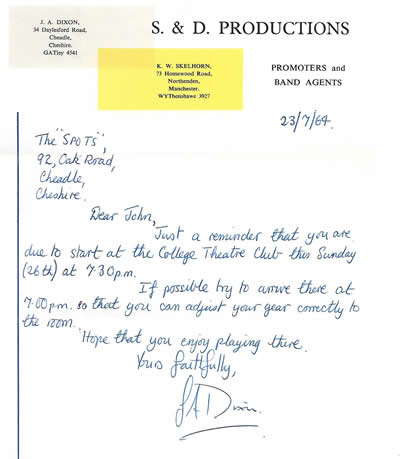 J. A. DIXON,
34 Daylesford Road,
Cheadle,
Cheshire.
GATley 4541
S. & D. PRODUCTIONS
K. W. SKELHORN,
73 Homewood Road,
Northenden,
Manchester.
WYThenshawe 3927
PROMOTERS and
BAND AGENTS
23/7/64.
The "SPOTS",
92, Oak Road,
Cheadle,
Cheshire.
Dear John,
Just a reminder that you are
due to start at the College Theatre Club this Sunday
(26th) at 7.30p.m.
If possible try to arrive there at
7.00p.m. so that you can adjust your gear correctly to
the room.
Hope that you enjoy playing there.
Yours faithfully,
J A Dixon.